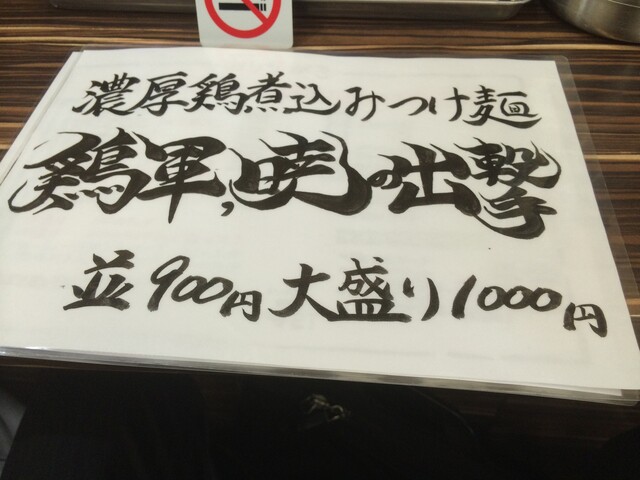 濃厚鶏煮込みつけ麺
鶏軍,暁の出撃
並900円大盛り1000円